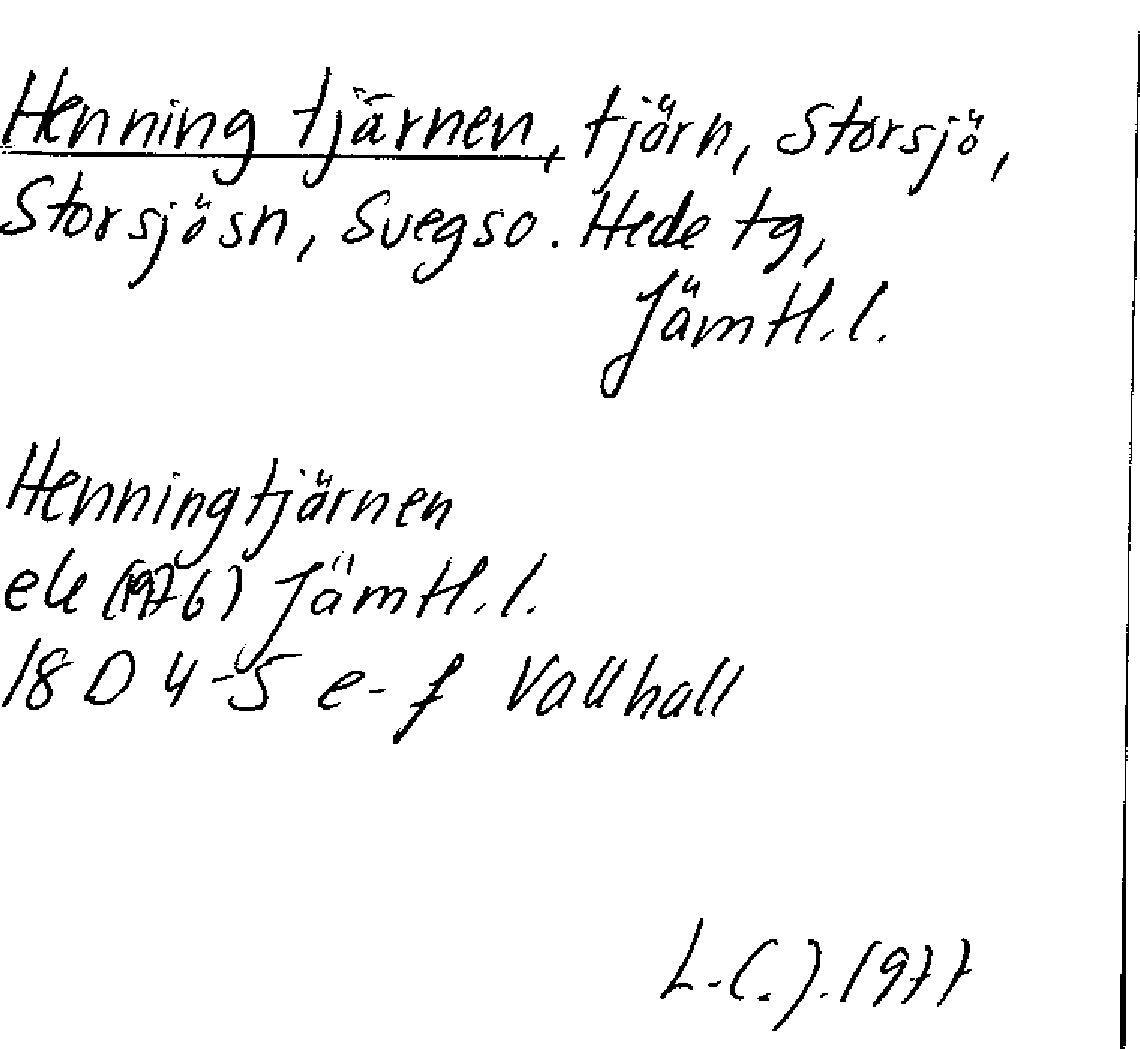 Henningtjärnen, tjärn, Storsjö,
Storsjösn, Svegso. Hede tg,
Jämtl.l.
Henningtjärnen
ek (1976) Jämtl.l.
18 D 4-5 e-f
L.C.J. 1977